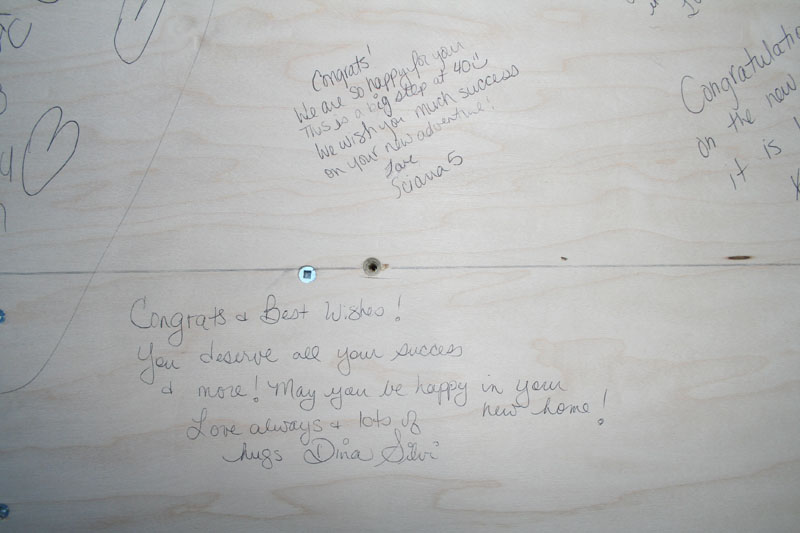 Congrats!
We are so happy for you
This is a big step at 40
We wish you much success
on your new adventure!
Love
Sciana 5
Congratulatio
on the new
it is
Congrats & Best Wishes!
You deserve all your success
& more! May you be happy in your
new home!
Love always & lots of
hugs Dina Silvi